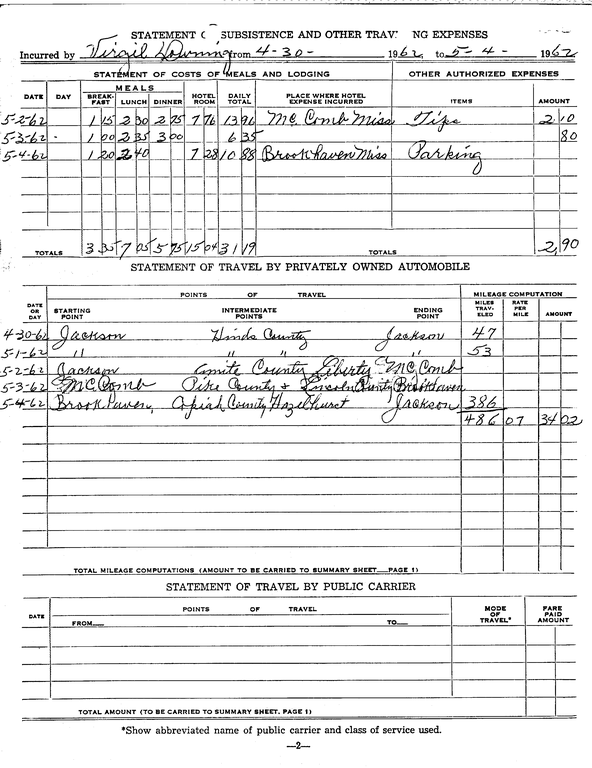 STATEMENT SUBSISTENCE AND OTHER TRAV NG EXPENSES
Incurred by Virgil Downing from 4-30- 1962, to 5-4- 1962
STATEMENT OF COSTS OF MEALS AND LODGING OTHER AUTHORIZED EXPENSES
MEALS
DATE DAY BREAK-FAST LUNCH DINNER HOTEL ROOM DAILY TOTAL PLACE WHERE HOTEL EXPENSE INCURRED ITEMS AMOUNT
5-2-62 1 15 2 30 2 75 7 76 13 96 Mc Comb Miss Tips 2 10
5-3-62 1 00 2 35 3 00 6 35 80
5-4-62 1 20 2 40 7 28 10 88 Brookhaven Miss Parking
TOTALS 3 35 7 05 5 75 15 04 31 19 TOTALS 2,90
STATEMENT OF TRAVEL BY PRIVATELY OWNED AUTOMOBILE
POINTS OF TRAVEL MILEAGE COMPUTATION
DATE OR DAY STARTING POINT INTERMEDIATE POINTS ENDING POINT MILES TRAV-ELED RATE PER MILE AMOUNT
4-30-62 Jackson Hinds County Jackson 47
5-1-62 " " " " 53
5-2-62 Jackson Amite County Liberty - McComb
5-3-62 McComb Pike County & Lincoln County Brookhaven
5-4-62 Brookhaven, Copiah County Hazelhurst Jackson 386
486 07 34 02
TOTAL MILEAGE COMPUTATIONS (AMOUNT TO BE CARRIED TO SUMMARY SHEET PAGE 1)
STATEMENT OF TRAVEL BY PUBLIC CARRIER
DATE POINTS OF TRAVEL MODE OF TRAVEL* FARE PAID AMOUNT
FROM TO
TOTAL AMOUNT (TO BE CARRIED TO SUMMARY SHEET. PAGE 1)
*Show abbreviated name of public carrier and class of service used.
—2—